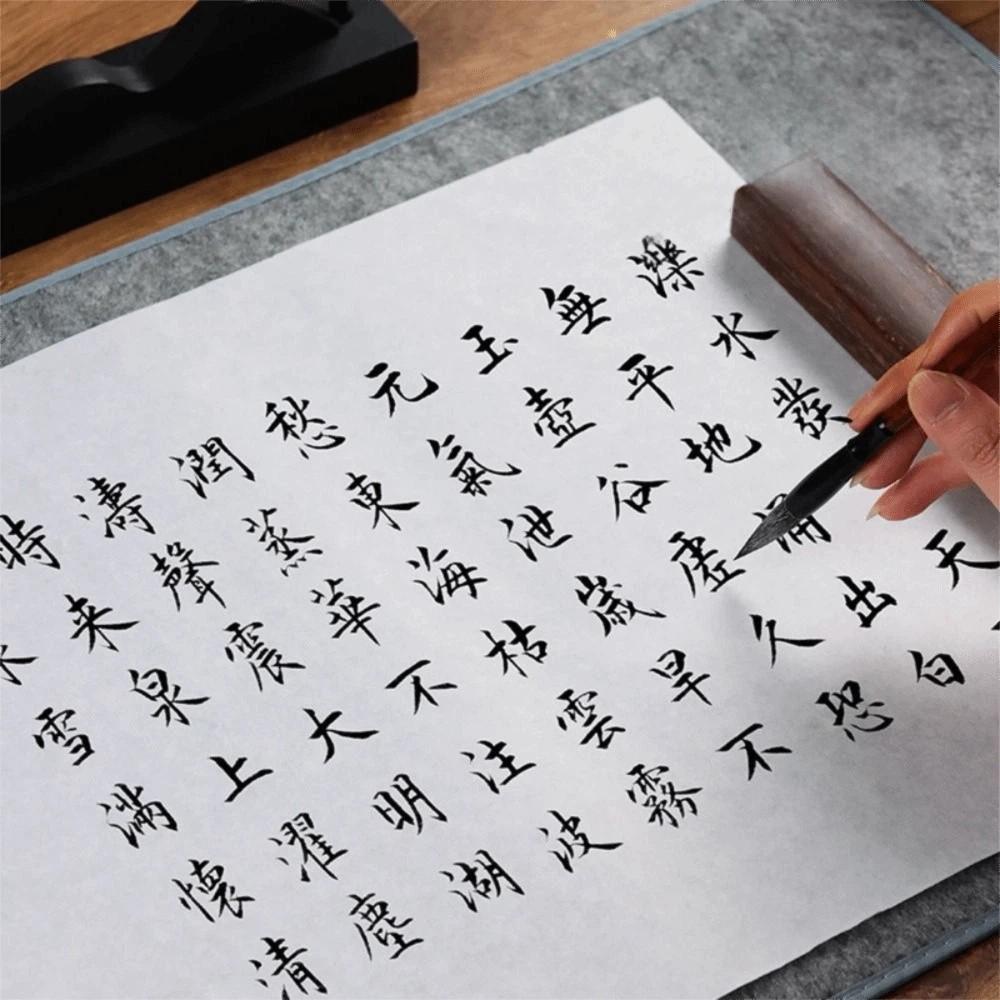 濼水發天
無平地涌出白
玉壺谷虛久恐
元氣泄歲旱不
愁東海枯雲霧
潤蒸華不注波
濤聲震大明湖
時来泉上濯塵
雪滿懷清